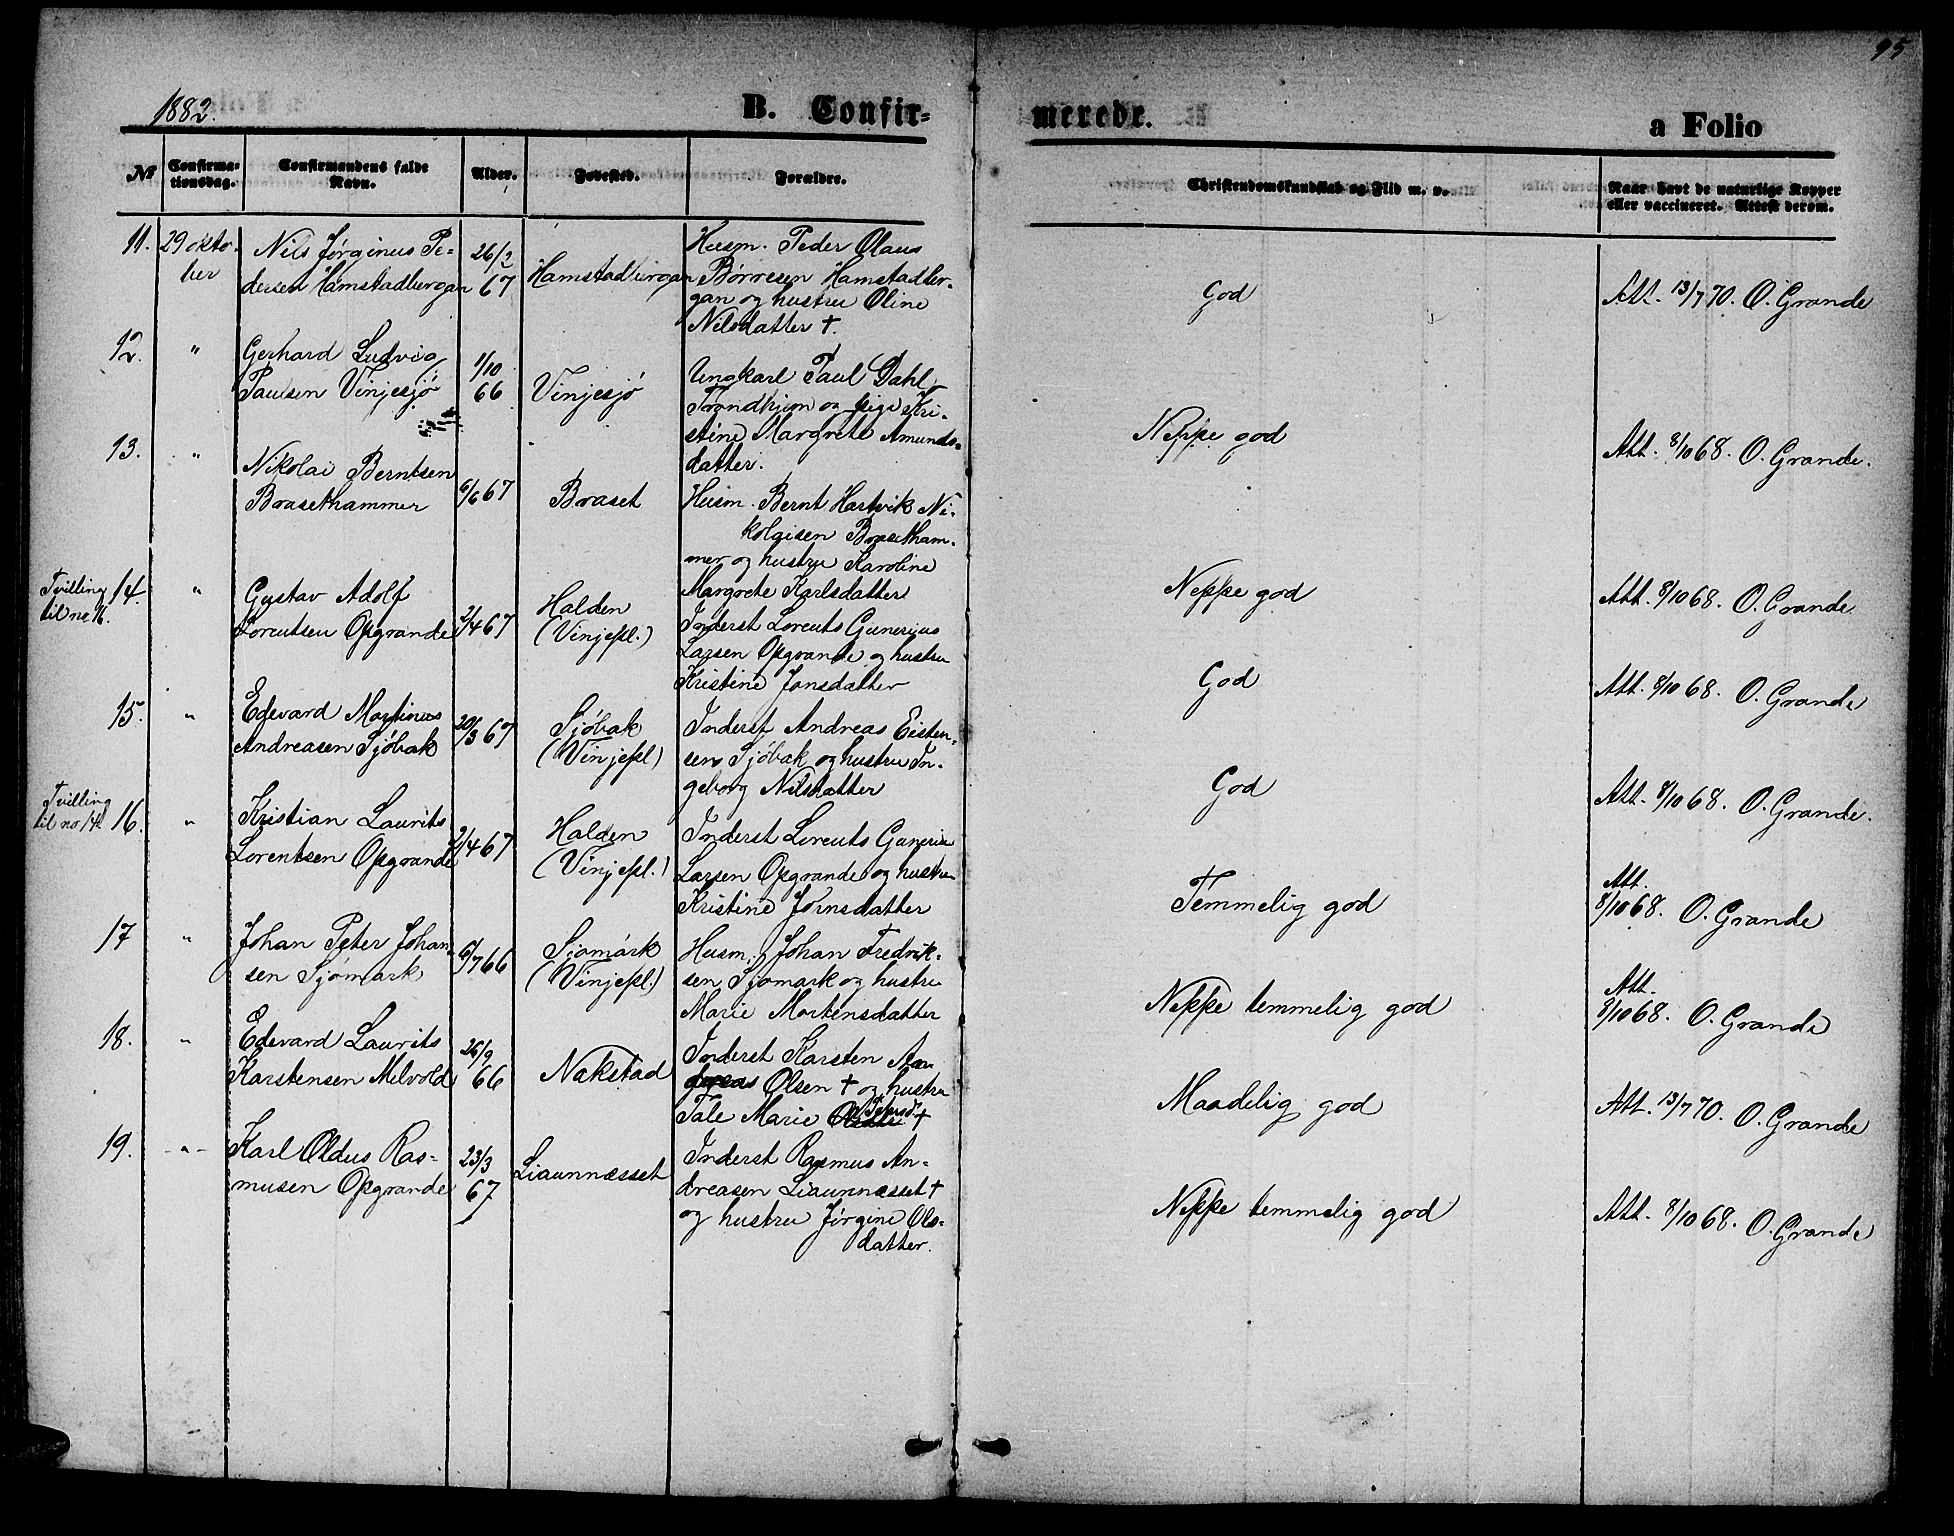 95
1882.
B. Confir=
merede.
a Folio
№
Confirma=
tionsdag.
Confirmandens fulde
Navn.
Alder.
Fødested.
Forældre.
Christendomskundskab og Flid m. v.
Naar havt de naturlige Kopper
eller vaccineret. Attest derom.
11. 29 okto-
ber
Nils Jørginus Pe-
dersen Hamstadbergan
26/2
67
Hamstadbergan
Husm. Peder Olaus
Børresen Hamstadber-
gan og hustru Oline
Nilsdatter †.
God
Att. 13/7 70. O. Grande
12. "
Gerhard Ludvig
Paulsen Vinjesjø
1/10
66
Vinjesjø
Ungkarl Paul Dahl
Trondhjem og pige Kri-
stine Margrete Amunds-
datter.
Neppe god
Att. 8/10 68. O. Grande.
13. "
Nikolai Berntsen
Brasethammer
6/6 67
Braset
Husm. Bernt Hartvik Ni-
kolaisen Brasetham-
mer og hustru Karoline
Margrete Karlsdatter
Neppe god
Att. 8/10 68. O. Grande
Tvilling
til no 16.
14. "
Gustav Adolf
Lorentsen Opgrande
2/4 67
Halden
(Vinjepl.)
Inderst Lorents Gunerius
Larsen Opgrande og hustru
Kristine Jonsdatter
God
Att. 8/10 68. O. Grande
15. "
Edevard Martinus
Andreasen Sjøbak
20/3 67
Sjøbak
(Vinjepl)
Inderst Andreas Eisten-
sen Sjøbak og hustru In-
geborg Nilsdatter
God
Att. 8/10 68. O. Grande.
Tvilling
til no 14.
16. "
Kristian Laurits
Lorentsen Opgrande
2/4 67
Halden
(Vinjepl.)
Inderst Lorents Gunerius
Larsen Opgrande og hustru
Kristine Jonsdatter
Temmelig god
Att.
8/10 68. O. Grande
17 "
Johan Peter Johan-
sen Sjømark
6/7 66
Sjømark
(Vinjepl.)
Husm. Johan Fredrik-
sen Sjømark og hustru
Marie Mortensdatter
Neppe temmelig god
Att.
8/10 68. O. Grande
18. "
Edevard Laurits
Karstensen Melvold
26/9
66
Nakstad
Inderst Karsten An
dreas Olsen † og hustru
Tale Marie †
Maadelig god
Att. 13/7 70. O. Grande
19. -"-
Karl Oldus Ras-
musen Opgrande
23/3
67
Liaunnæsset
Inderst Rasmus An-
dreasen Liaunnæsset †
og hustru Jørgine Ols-
datter.
Neppe temmelig god
Att. 8/10 68. O. Grande